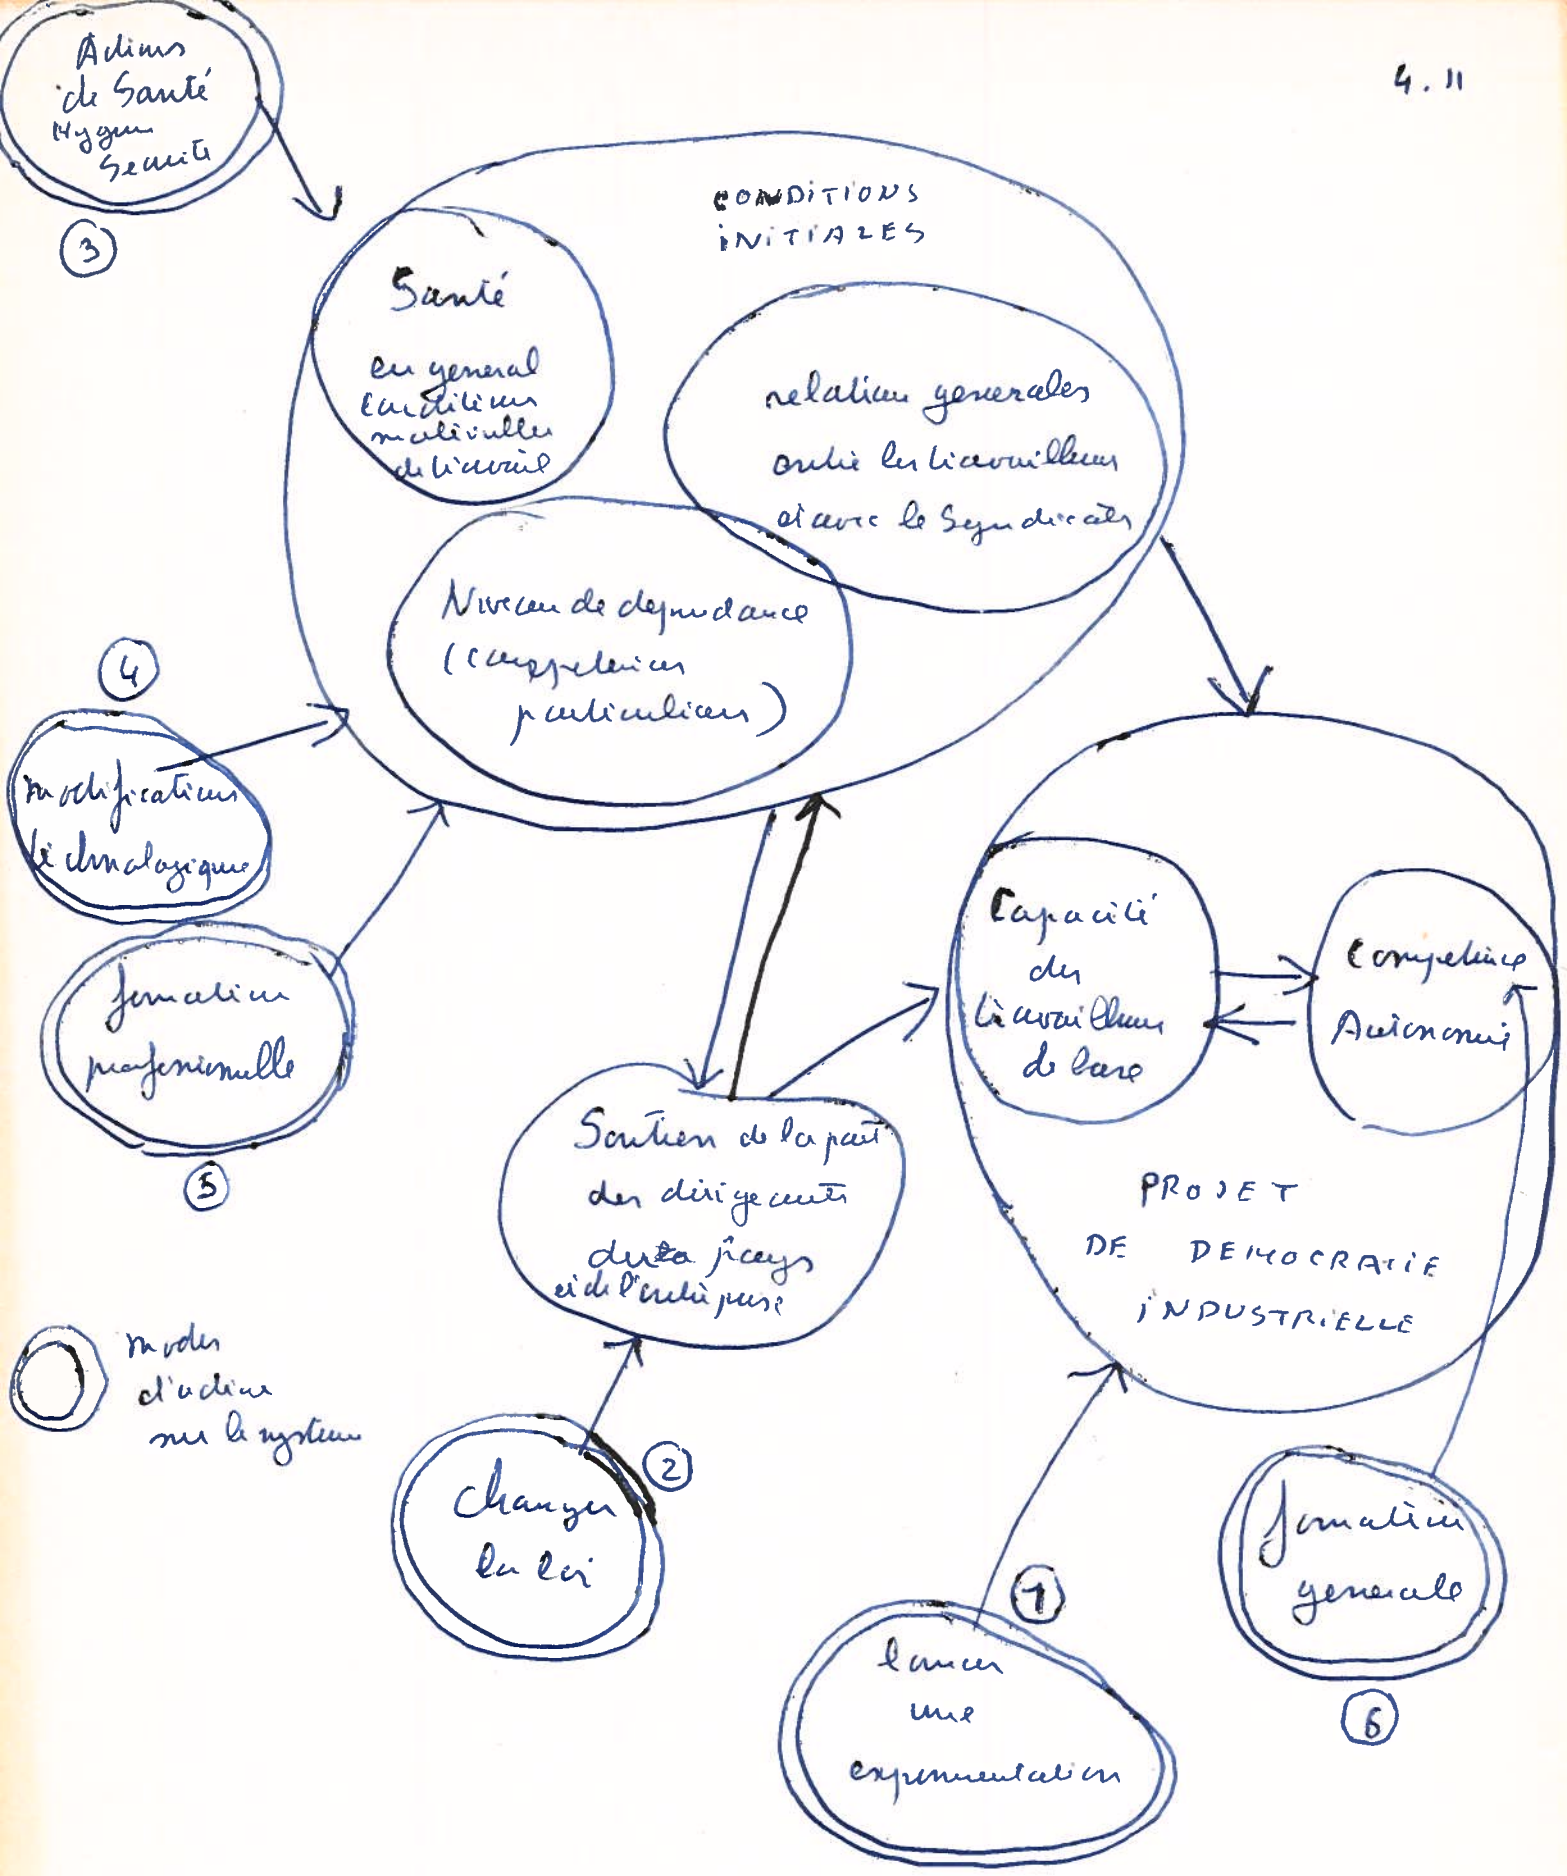 4.11
Actions
de Santé
Hygien
Securité
3
CONDITIONS
INITIALES
Santé
en general
conditions
materielles
de travail
relation generales
entre les travailleurs
et avec le Syndicats
Niveau de dependance
(competences
particulieres)
4
modifications
technologique
formation
professionnelle
5
Capacité
des
travailleurs
de base
Competence
Autonomie
PROJET
DE DEMOCRATIE
INDUSTRIELLE
Soutien de la part
des dirigeants
du pays
et de l'entreprise
modes
d'action
sur le systeme
changer
la loi
2
1
lancer
une
experimentation
formation
generale
6